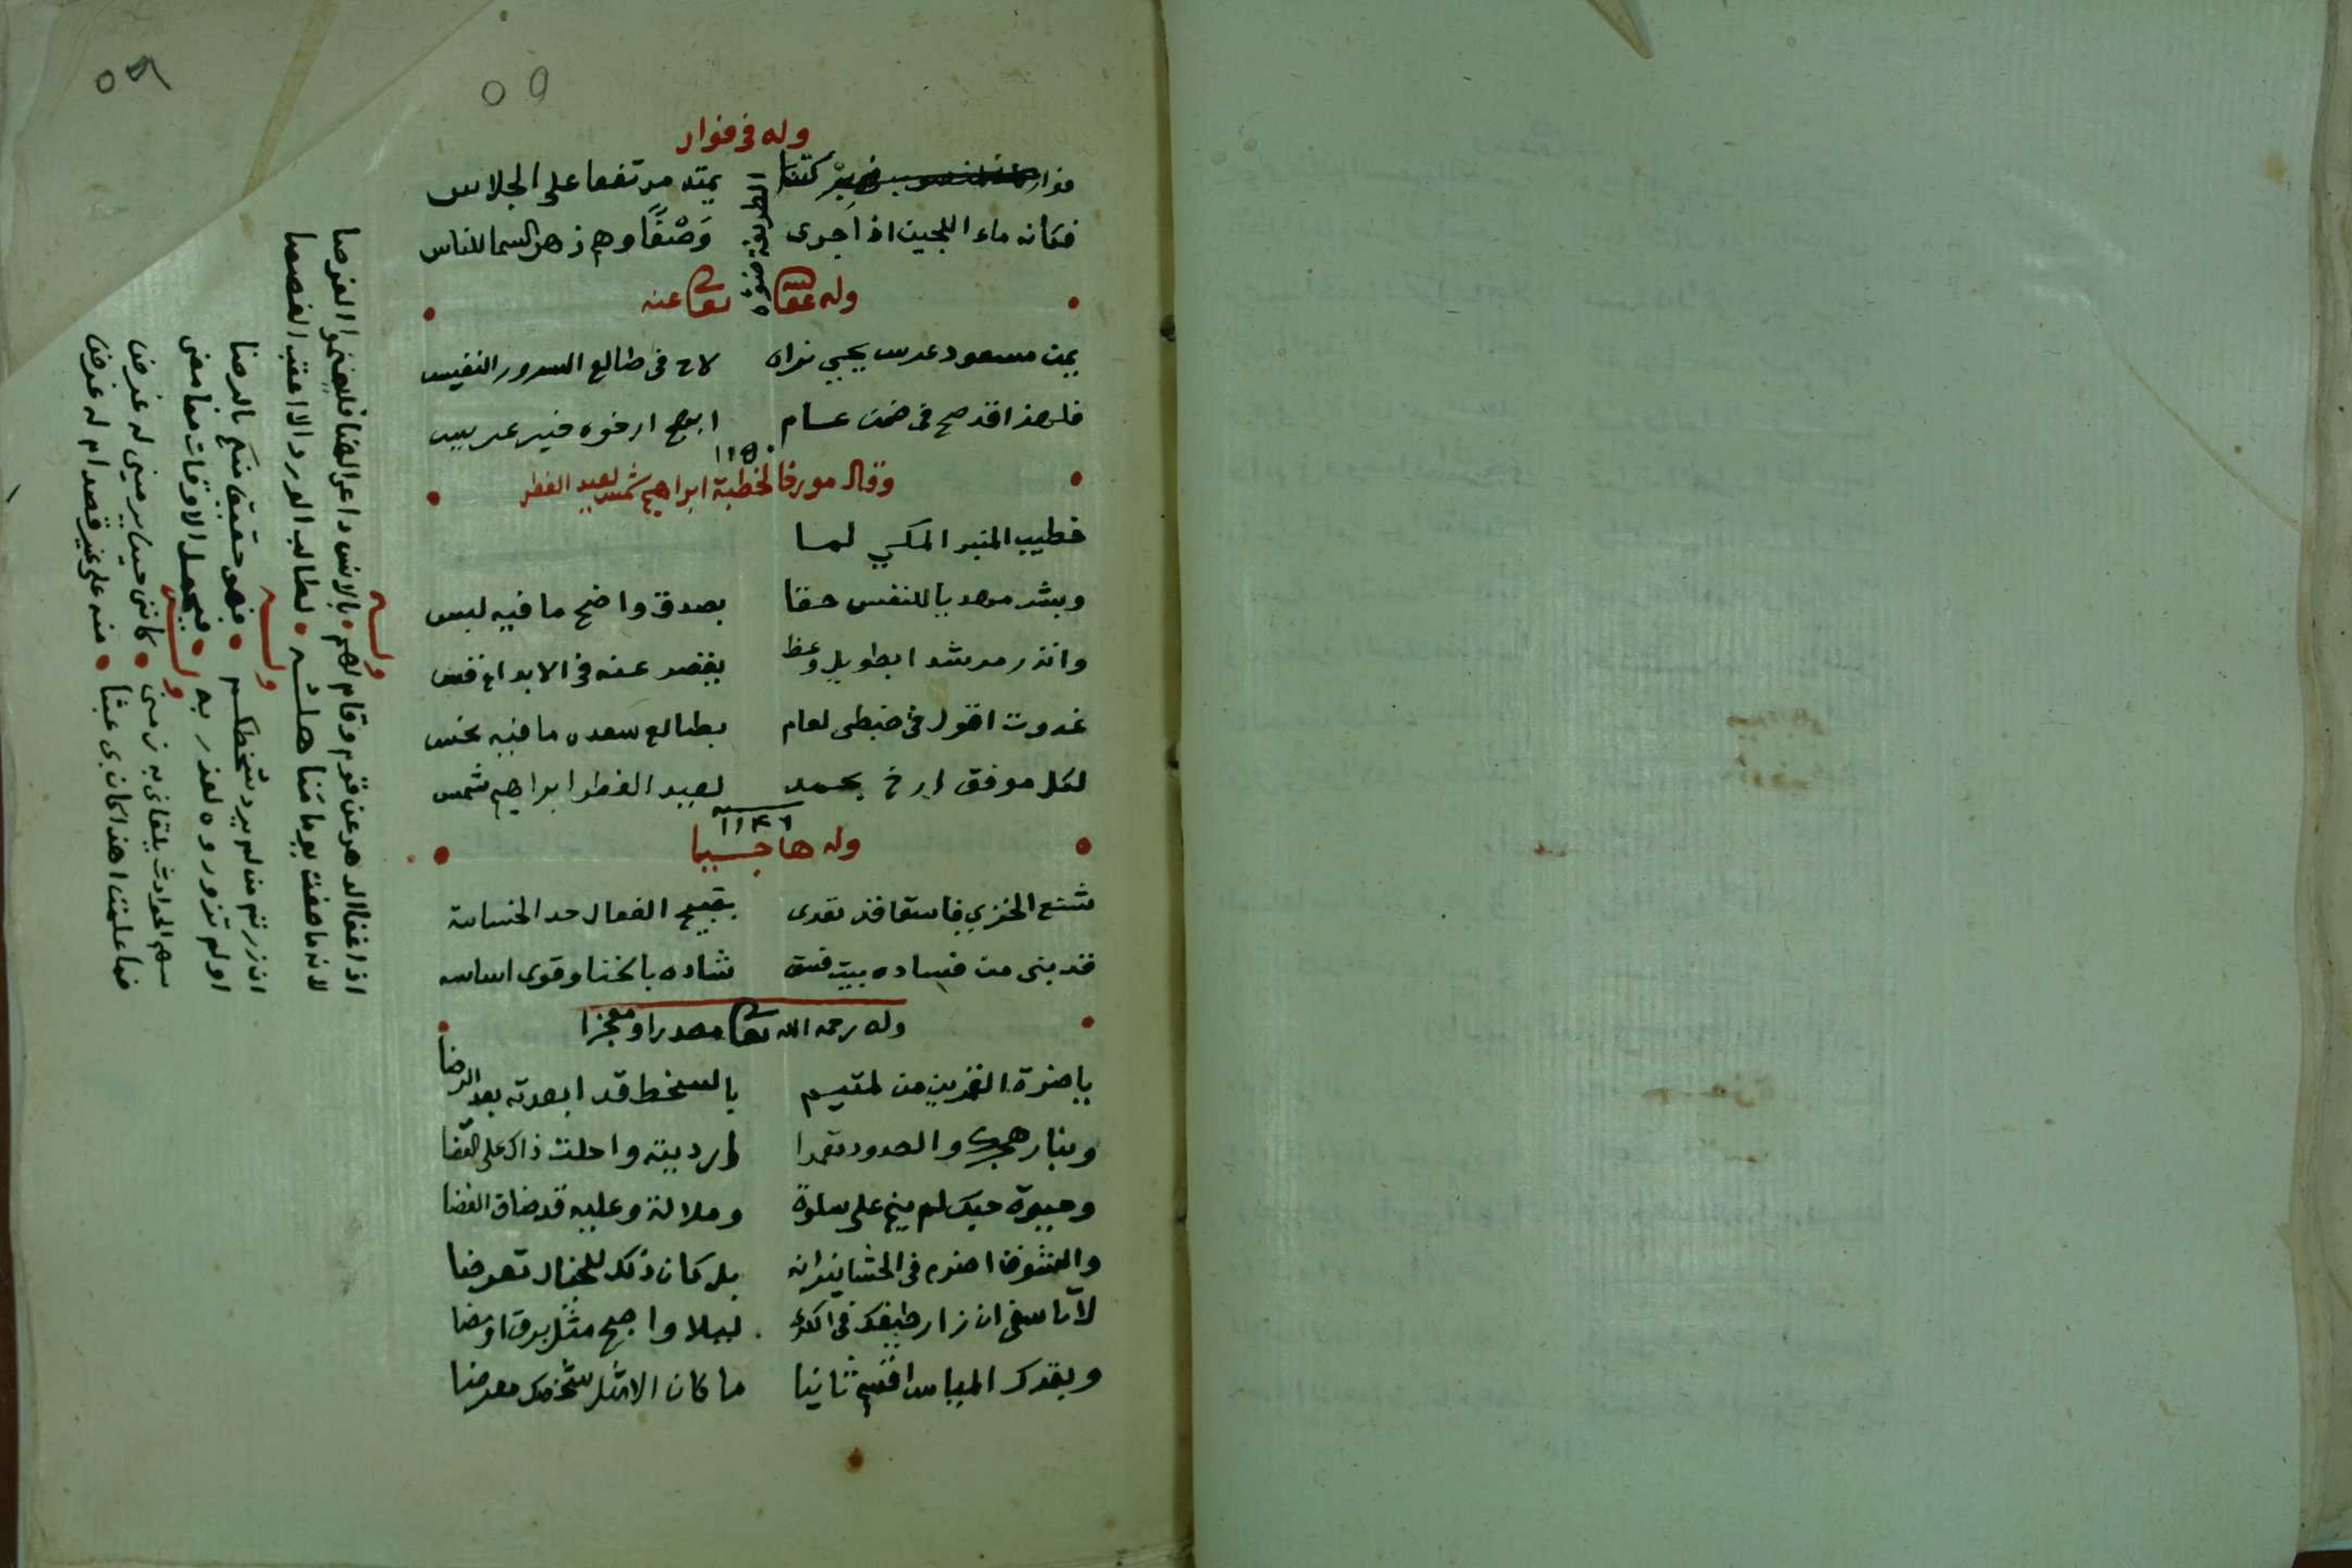 وله في فوار
فوار بركتنا يمتد مرتفعا على الجلاس
فكانه ماء اللجين اذا جرى وصفا وهم زهر السما للناس
وله عفا الله تعالى عنه
يمن مسعود عرس يحيى نراه لاح في طالع السرور النفيس
فلهذا قد صح في ضمن عام ابهج ارخوه فيه عريس
١١٥٠
وقال مورخا لخطبة ابراهيم شمس لعيد الفطر
خطيب المنبر المكي لما
وبشر مهديا للنفس حقا بصدق واضح ما فيه لبس
وانذر مرشدا بطويل وعظ يقصر عنه في الابداع قس
غدوت اقول في ضبطي لعام بطالع سعده ما فيه نحس
لكل موفق ارخ بحمد لعيد الفطر ابراهيم شمس
١١٤٦
وله هاجيا
شنع الخزي فاسقا قد تعدى بقبيح الفعال حد الخساسة
قد بنى من فساده بيت فسق شاده بالخنا وقوى اساسه
وله رحمه الله تعالى مصدرا ومعجزا
يا ضرة القمرين من لمتيم بالسخط قد ابعدته بعد الرضا
وبنار هجرك والصدود تعمدا ارديته واحلت ذاك على القضا
وحيوة حبك لم ينم على سلوة وملالة وعليه قد ضاق الفضا
والشوق اضرم في الحشا نيرانه بل كان ذلك للخيال تعرضا
لا تاسفي ان زار طيفك في الكرى ليلا واجح مثل برق اومضا
وبقدك المياس اقسم ثانيا ما كان الا مثل شخصك معرضا
وله
اذا غفا الدهر عن قوم وقام لهم بالانس داعي الهنا فليغنموا الفرصا
لانه ما صفت يوما مناهله لطالب الورد الا اعقب الغصصا
وله
ان زرتم من لم يرد سخطكم فهو حقيق منكم بالرضا
او لم تزوروه لعذر به فيحمل الاوقات فيما مضى
وله
سهم الحوادث يلقاني به زمني كانني حينا يرميني له غرض
فما علمت اهذا كان بي عبثا منه على غير قصد ام له غرض